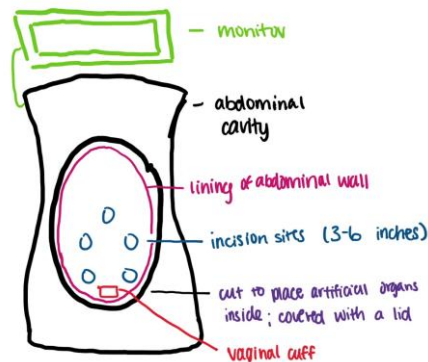 monitor
abdominal
cavity
lining of abdominal wall
incision sites (3-6 inches)
cut to place artificial organs
inside; covered with a lid
vaginal cuff